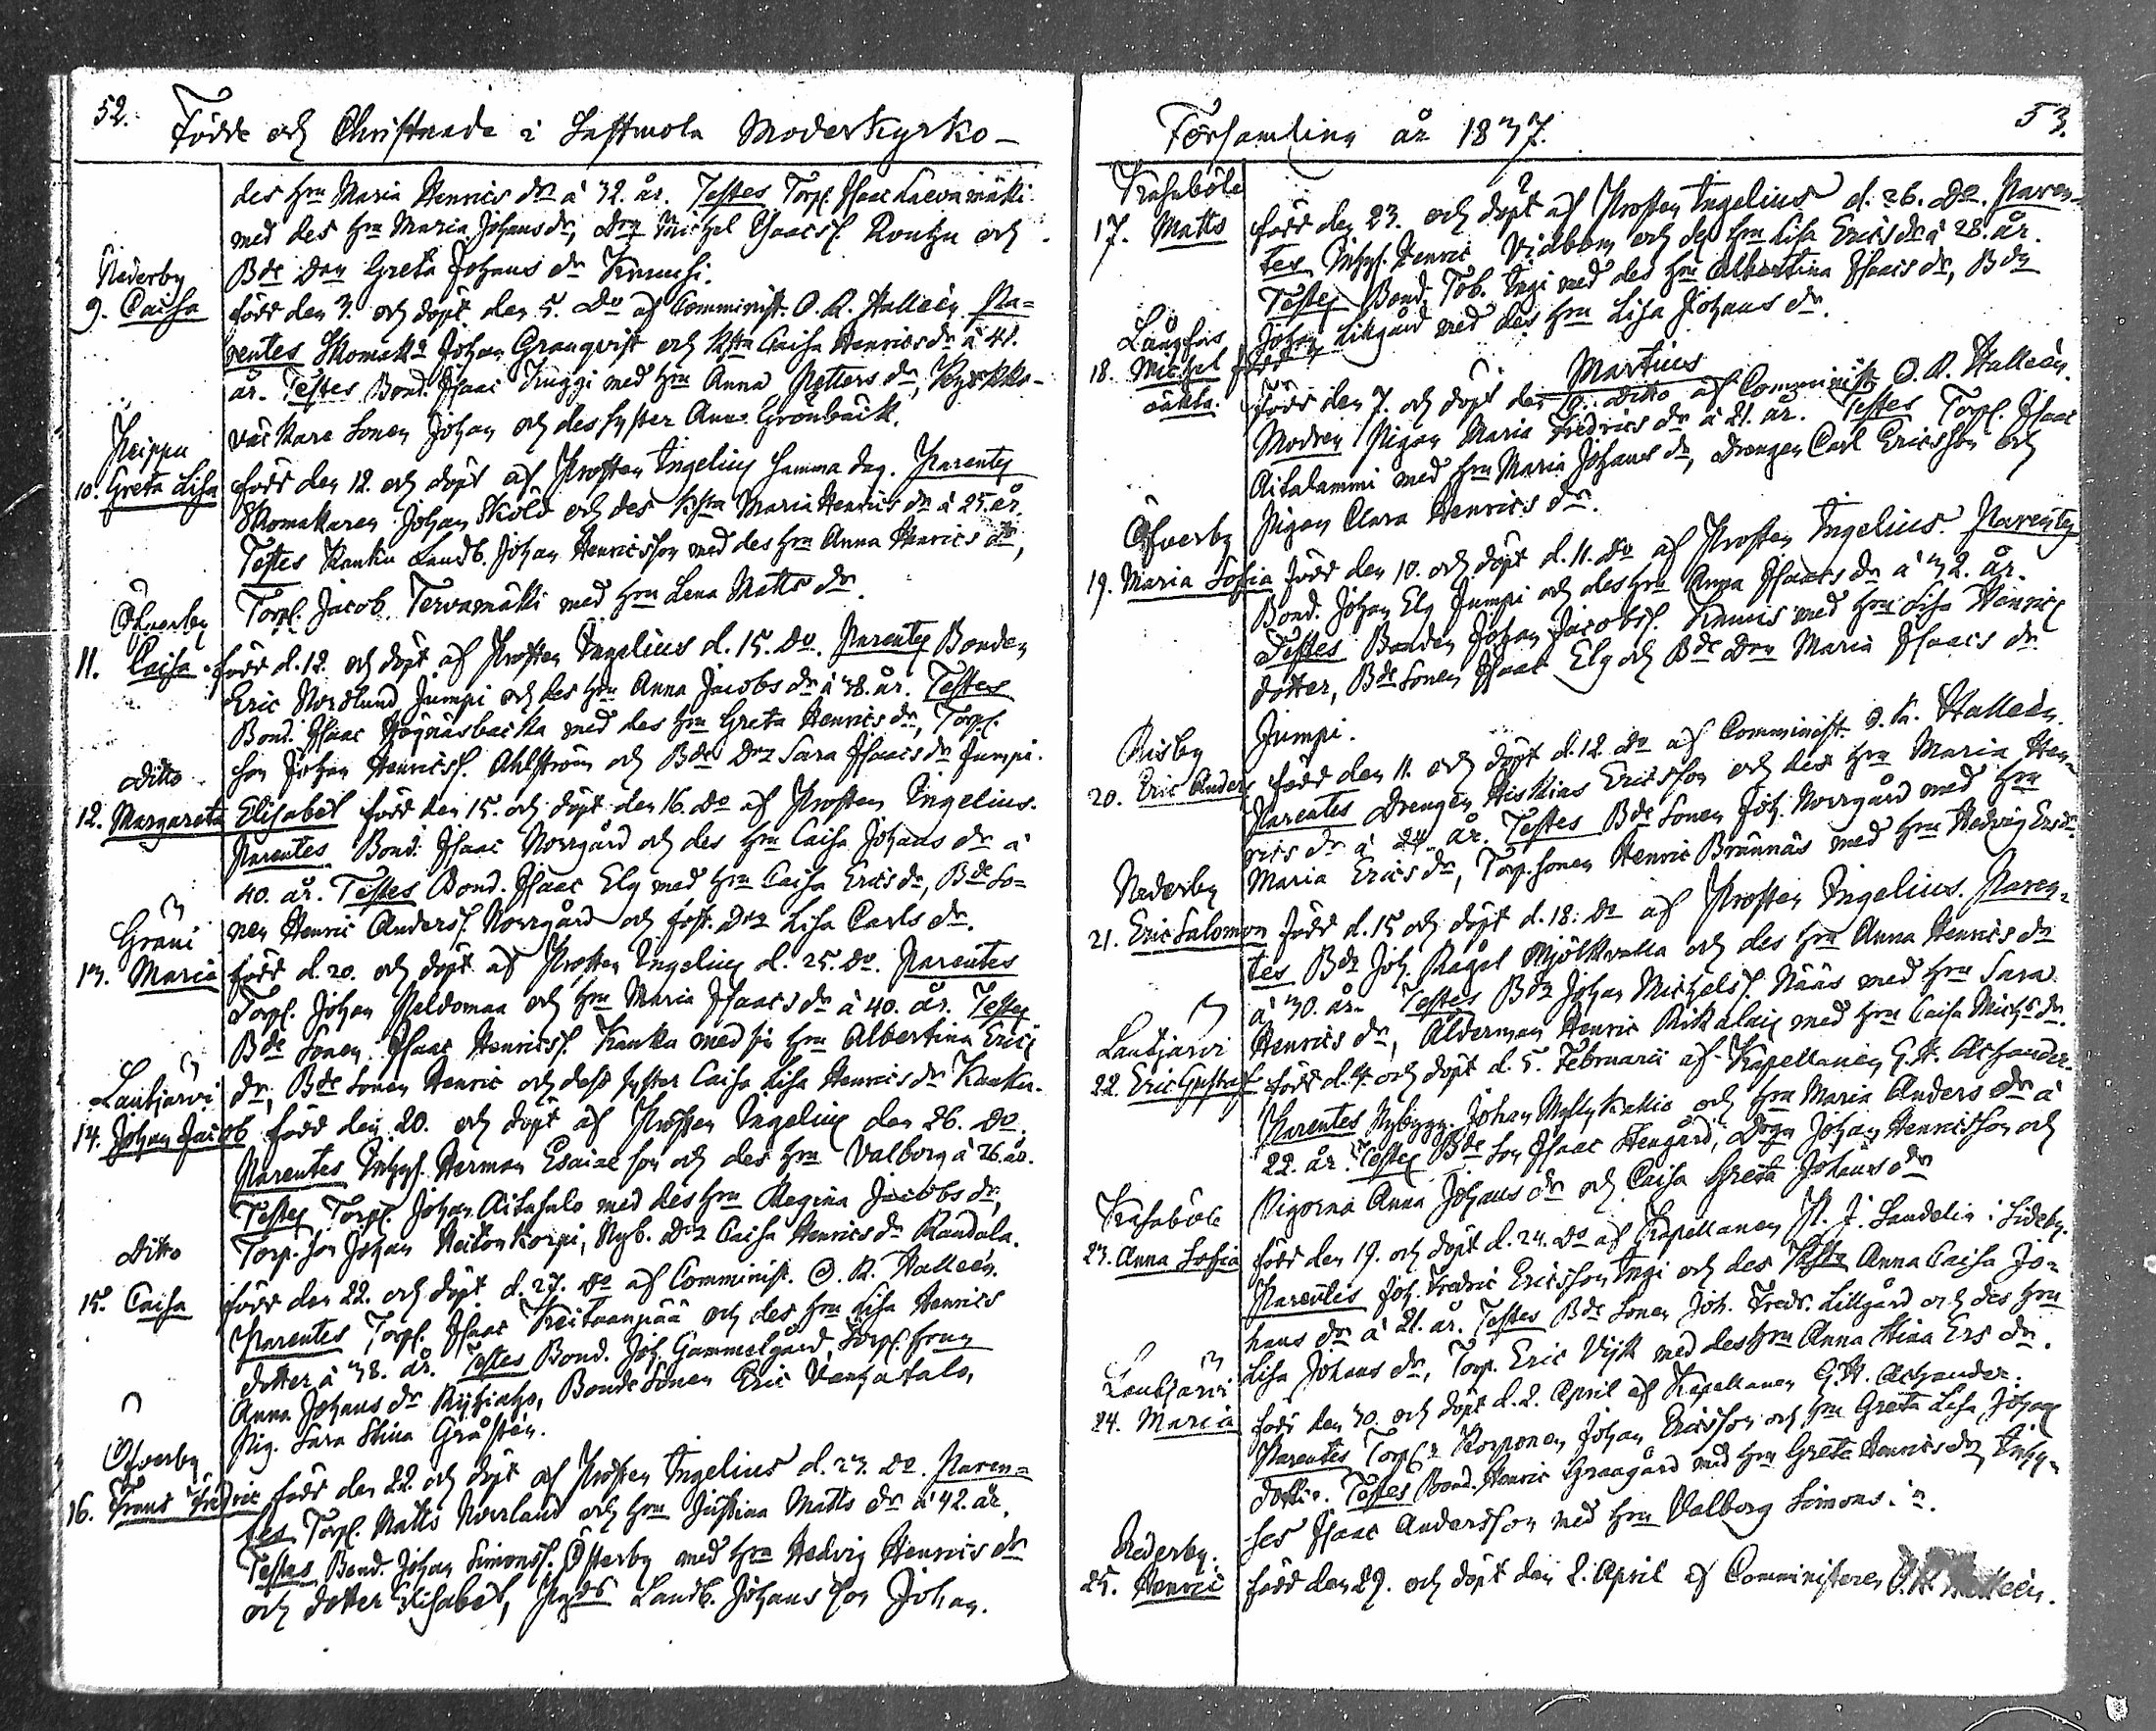 52.
Födde och Christnade i Lappmola Moderkyrko-
des Hru Maria Henrics dr à 32. år. Testes Torp. Isaac Laevamäki
med des Hru Maria Johansdr, Drg Michel Isacss. Rouhu och
Bde Don Greta Johans dr Knuusi.
Nederby
9. Caisa född den 3. och döpt den 5. do af Comminist. O. R. Halleén. Pa=
rentes Skomak. Johan Granqvist och Hstr Caisa Henricsdr à 41.
år. Testes Bond. Isaac Kuggi med Hru Anna Petters dr, Kyrkko-
väcktare Sonen Johan och des syster Anna Grönbäck.
Peippu
10. Greta Lisa född den 12. och döpt af Prosten Ingelius samma dag. Parentes
Skomakaren Johan Sköld och des Hstr Maria Henrics dr à 25. år.
Testes Kanku Landb. Johan Henricsson med des Hru Anna Henrics dr,
Torp. Jacob Tervamäki med Hru Lena Matts dr.
Öfverby
11. Caisa född d. 12. och döpt af Prosten Ingelius d. 15. do. Parentes Bonden
Eric Nordlund Jumpi och des Hru Anna Jacobs dr à 38. år. Testes
Bond. Isaac Högnäsbacka med des Hru Greta Henrics dr, Torp.
son Johan Henricss. Ahlström och Bde Dr Sara Isaacs dr Jumpi.
ditto
12. Margareta Elisabet född den 15. och döpt den 16. do af Prosten Ingelius.
Parentes Bond. Isaac Norrgård och des Hru Caisa Johans dr à
40. år. Testes Bond. Isaac Elg med Hru Caisa Erics dr, Bde So=
nen Henric Anderss. Norrgård och fost. Dr Lisa Carls dr.
Gräni
13. Maria född d. 20. och döpt af Prosten Ingelius d. 25. do. Parentes
Torp. Johan Peldomaa och Hru Maria Isaacs dr à 40. år. Testes
Bde Sonen Isaac Henricss. Kanka med sin Hru Albertina Erics
dr, Bde Sonen Henric och dess syster Caisa Lisa Henrics dr Kanka.
Lautjärvi
14. Johan Jacob född den 20. och döpt af Prosten Ingelius den 26. do.
Parentes Inhys. Herman Esaiae son och des Hru Valborg à 26. år.
Testes Torp. Johan Aitasalo med des Hru Regina Jacobs dr,
Torp. son Johan Neitonkorpi, Nyb. Dr Caisa Henrics dr Randala.
ditto
15. Caisa född den 22. och döpt d. 27. do af Comminist. O. R. Halleén.
Parentes Torp. Isaac Keitaanpää och des Hru Lisa Henrics
dotter à 38. år. Testes Bond. Joh. Gammelgård, Torp. hrun
Anna Johans dr Ryhiaho, Bonde Sonen Eric Vanhatalo,
Pig. Sara Stina Gråstén.
Öfverby
16. Frans Fredric född den 22. och döpt af Prosten Ingelius d. 23. do. Paren=
tes Torp. Matts Norrland och Hru Justina Matts dr à 42. år.
Testes Bond. Johan Simonss. Österby med Hru Hedvig Henrics dr
och dotter Elisabet, Landb. Johans son Johan.
53.
Församling år 1837.
Träskböle
17. Matts född den 23. och döpt af Prosten Ingelius d. 26. do. Paren=
tes Inhys. Henric Vidbom och des Hru Lisa Erics dr à 28. år.
Testes Bond. Tob. Ingi med des Hru Albertina Isaacs dr, Bdn
Johan Lillgård med des Hru Lisa Johans dr.
Martius
Långfors
18. Michel oäkta. född den 7. och döpt den 10. ditto af Comminist. O. R. Halleén.
Modren Pigan Maria Fredrics dr à 21. år. Testes Torp. Isaac
Aitalammi med Hru Maria Johans dr, Drängen Carl Ericsson och
Pigan Clara Henrics dr.
Öfverby
19. Maria Sofia född den 10. och döpt d. 11. do af Prosten Ingelius. Parentes
Bond. Johan Elg Jumpi och des Hru Anna Isaacs dr à 32. år.
Testes Bonden Johan Jacobss. Knuus med Hru Lisa Henrics
dotter, Bde Sonen Isaac Elg och Bde Don Maria Isaacs dr
Jumpi.
Risby
20. Eric Anders född den 11. och döpt d. 12. do af Comminist. O. R. Halleén.
Parentes Drengen Hiskias Ericsson och des Hru Maria Hen=
rics dr à 24. år. Testes Bde Sonen Joh. Norrgård med Hru
Maria Erics dr, Torp. sonen Henric Brännäs med Hru Hedvig Ersdr.
Nederby
21. Eric Salomon född d. 15 och döpt d. 18. do af Prosten Ingelius. Paren=
tes Bdn Joh. Rågel Mjölkvalla och des Hru Anna Henrics dr
à 30. år. Testes Bdn Johan Michelss. Nääs med Hru Sara
Henrics dr, Ålderman Henric Rikalaix med Hru Caisa Michs dr.
Lautjärvi
22. Eric Gustaf född d. 4. och döpt d. 5. Februarii af Kapellanen G. H. Achander.
Parentes Nybygg. Johan Myllykallio och Hru Maria Anders dr à
22. år. Testes Bde Son Isaac Stengård, Drgn Johan Henricsson och
Pigorna Anna Johans dr och Caisa Greta Johans dr
Träskböle
23. Anna Sofia född den 19. och döpt d. 24. do af Kapellanen P. J. Sandelin i Sideby.
Parentes Joh. Fredric Ericsson Ingi och des Hstr Anna Caisa Jo=
hans dr à 21. år. Testes Bde Sonen Joh. Fredr. Lillgård och des Hru
Lisa Johans dr, Torp. Eric Vijk med des Hru Anna Stina Ers dr.
Lautjärvi
24. Maria född den 30. och döpt d. 2. April af Kapellanen G. H. Achander.
Parentes Torp. Korponen Johan Ericsson och Hru Greta Lisa Johans
dotter. Testes Bond. Henric Graagård med Hru Greta Henrics dr, Inhy=
ses Isaac Andersson med Hru Valborg Simons dr.
Nederby.
25. Henric född den 29. och döpt den 2. April af Comministeren O. R. Halleén.